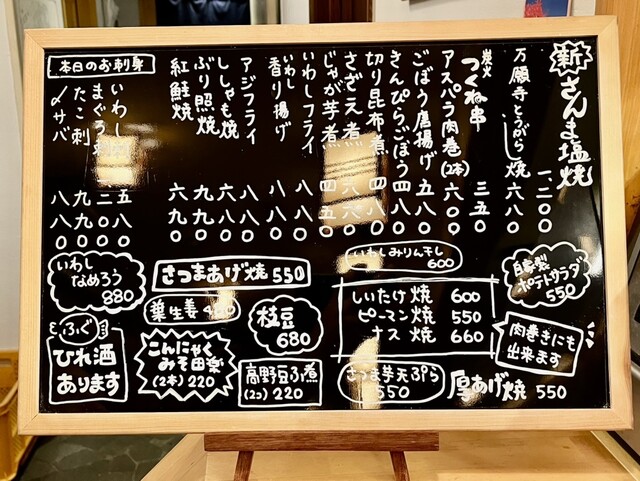 新 さんま塩焼 一、二〇〇
万願寺とうがらし焼 六八〇
炭火
つくね串 三五〇
アスパラ肉巻(2本) 六〇〇
ごぼう唐揚げ 五八〇
きんぴらごぼう 四八〇
切り昆布煮 四八〇
さざえ煮 六八〇
じゃが芋煮
いわしフライ 八八〇
いわし香り揚げ 八八〇
アジフライ
ししゃも焼 六八〇
ぶり照焼
紅鮭焼 六九〇
本日のお刺身
いわし刺 五八〇
まぐろ刺
たこ刺 九八〇
〆サバ 八八〇
いわしみりん干し
600
自家製
ポテトサラダ
550
しいたけ焼 600
ピーマン焼 550
ナス焼 660
肉巻きにも
出来ます
さつま芋天ぷら
550
厚あげ焼 550
さつまあげ焼 550
葉生姜
枝豆
680
高野豆ふ煮
(2コ) 220
いわし
なめろう
880
ふぐ
ひれ酒
あります
こんにゃく
みそ田楽
(2本) 220